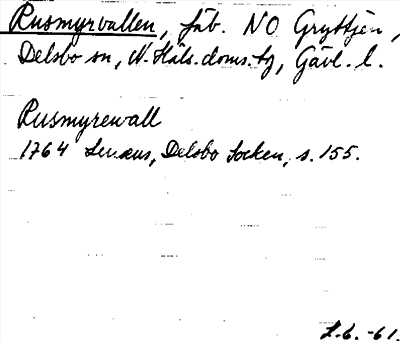 Rusmyrvallen, fäb. NO Gryttjen,
Delsbo sn, N. Häls. doms. tg, Gävl. l.
Rusmyrewall
1764 Lenæus, Delsbo Socken, s. 155.
L.b. -61.